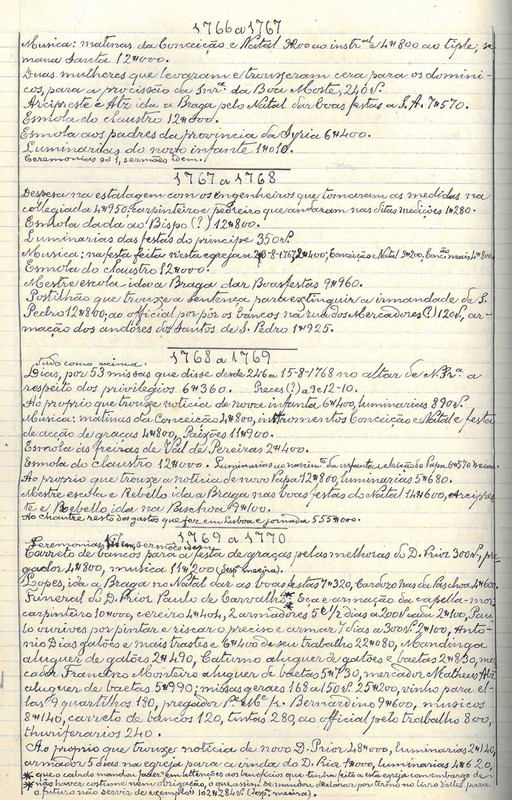 1766 a 1767
Musica: matinas da Conceição e Natal 3200 ao instr.al e 4#800 ao tiple; se
mana Santa 12#000.
Duas mulheres que levaram e trouxeram cera para os domini-
cos, para a procissão da Snrª da Boa Morte, 240 rs.
Arcipreste e Abz ida a Braga pelo Natal dar boas festas a S.A. 7#570.
Esmola do claustro 12#000.
Esmola aos padres da provincia da Syria 6#400.
Luminarias do novo infante 1#010.
Ceremonias só 1, sermões idem.
1767 a 1768
Despesa na estalagem com os engenheiros que tomaram as medidas na
collegiada 4#950, carpinteiro e pedreiro que andaram nas ditas medições 1#280.
Esmola dada ao Bispo (?) 12#800.
Luminarias das festas do principe 350 rs.
Musica: na festa feita n'esta egreja a 28-8-1767, 2#400; Conceição e Natal 3#200, Conc.ção mais 4#800
Esmola do claustro 12#000.
Mestre escola ida a Braga dar Boas festas 9#960.
Postilhão que trouxe a sentença para extinguir a irmandade de S.
Pedro 12#800, ao official por pôr os bancos na rua dos Mercadores (?) 120 rs, ar-
mação dos andores dos Santos de S. Pedro 1#925.
1768 a 1769
Tudo como acima.
Dias, por 53 missas que disse desde 24-6 a 15-8-1768 no altar de N. Srª a
respeito dos privilegios 6#360. Preces (?) a 9 e 12-10.
Ao proprio que trouxe noticia de nova infanta 6#400, luminarias 890 rs.
Musica: matinas da Conceição 4#800, instromentos Conceição e Natal e festa
de acção de graças 4#800, Paixões 11#900.
Esmola ás freiras de Val de Pereiras 2#400.
Esmola do claustro 12#000. Luminarias ao nascim.to da infanta e eleição do Papa 6#570
Ao proprio que trouxe a noticia de novo Papa 12#800, luminarias 5#680.
Mestre escolla e Rebello ida a Braga nas boas festas do Natal 14#600, Arcipres-
te e Rebello ida na Paschoa 9#100.
Ao chantre resto dos gastos que fez em Lisboa e jornada 555#000.
1769 a 1770
Ceremonias, idem, sermões idem.
Carreto de bancos para a festa de graças pelas melhoras do D. Prior 300 rs, pré-
gador 4#800, musica 11#200
Lopes, ida a Braga no Natal dar as boas festas 7#320, Cardozo nas da Paschoa 4#600.
Funeral do D. Prior Paulo de Carvalho: * Eça e armação da capella-mor,
carpinteiro 10#000, cereiro 4#404, 2 armadores 5 e 1/2 dias a 200 rs cada 2#100, Pau-
lo ourives por pintar e riscar o preciso e armar 7 dias a 300 rs 2#100, Anto-
nio Dias galões e mais trastes e 6#400 de seu trabalho 22#080, Mandinga
aluguer de galões 2#490, Caturno aluguer de galões e baetas 2#830, mer-
cador Francisco Monteiro aluguer de baetas 5#730, mercador Matheus
aluguer de baetas 5#990; missas geraes 168 a 150 rs 25#200, vinho para el-
las 9 quartilhos 190, pregador Fr. Bernardino 9#600, musicos
8#140, carreto de bancos 120, tintas 280, ao official pelo trabalho 800,
thuriferarios 240.
Ao proprio que trouxe noticia de novo D. Prior 48#000, luminarias 2#140,
armador 5 dias na egreja para a vinda do D. Prior 1#000, luminarias 4#620,
* que o cabido mandou fazer em attenções aos beneficios que tinha feito a esta egreja com embargo de
não haver costume nem obrigação, o que assim se mandou declarar por termo no livro d'elles para
o futuro não servir de exemplo) 102#284